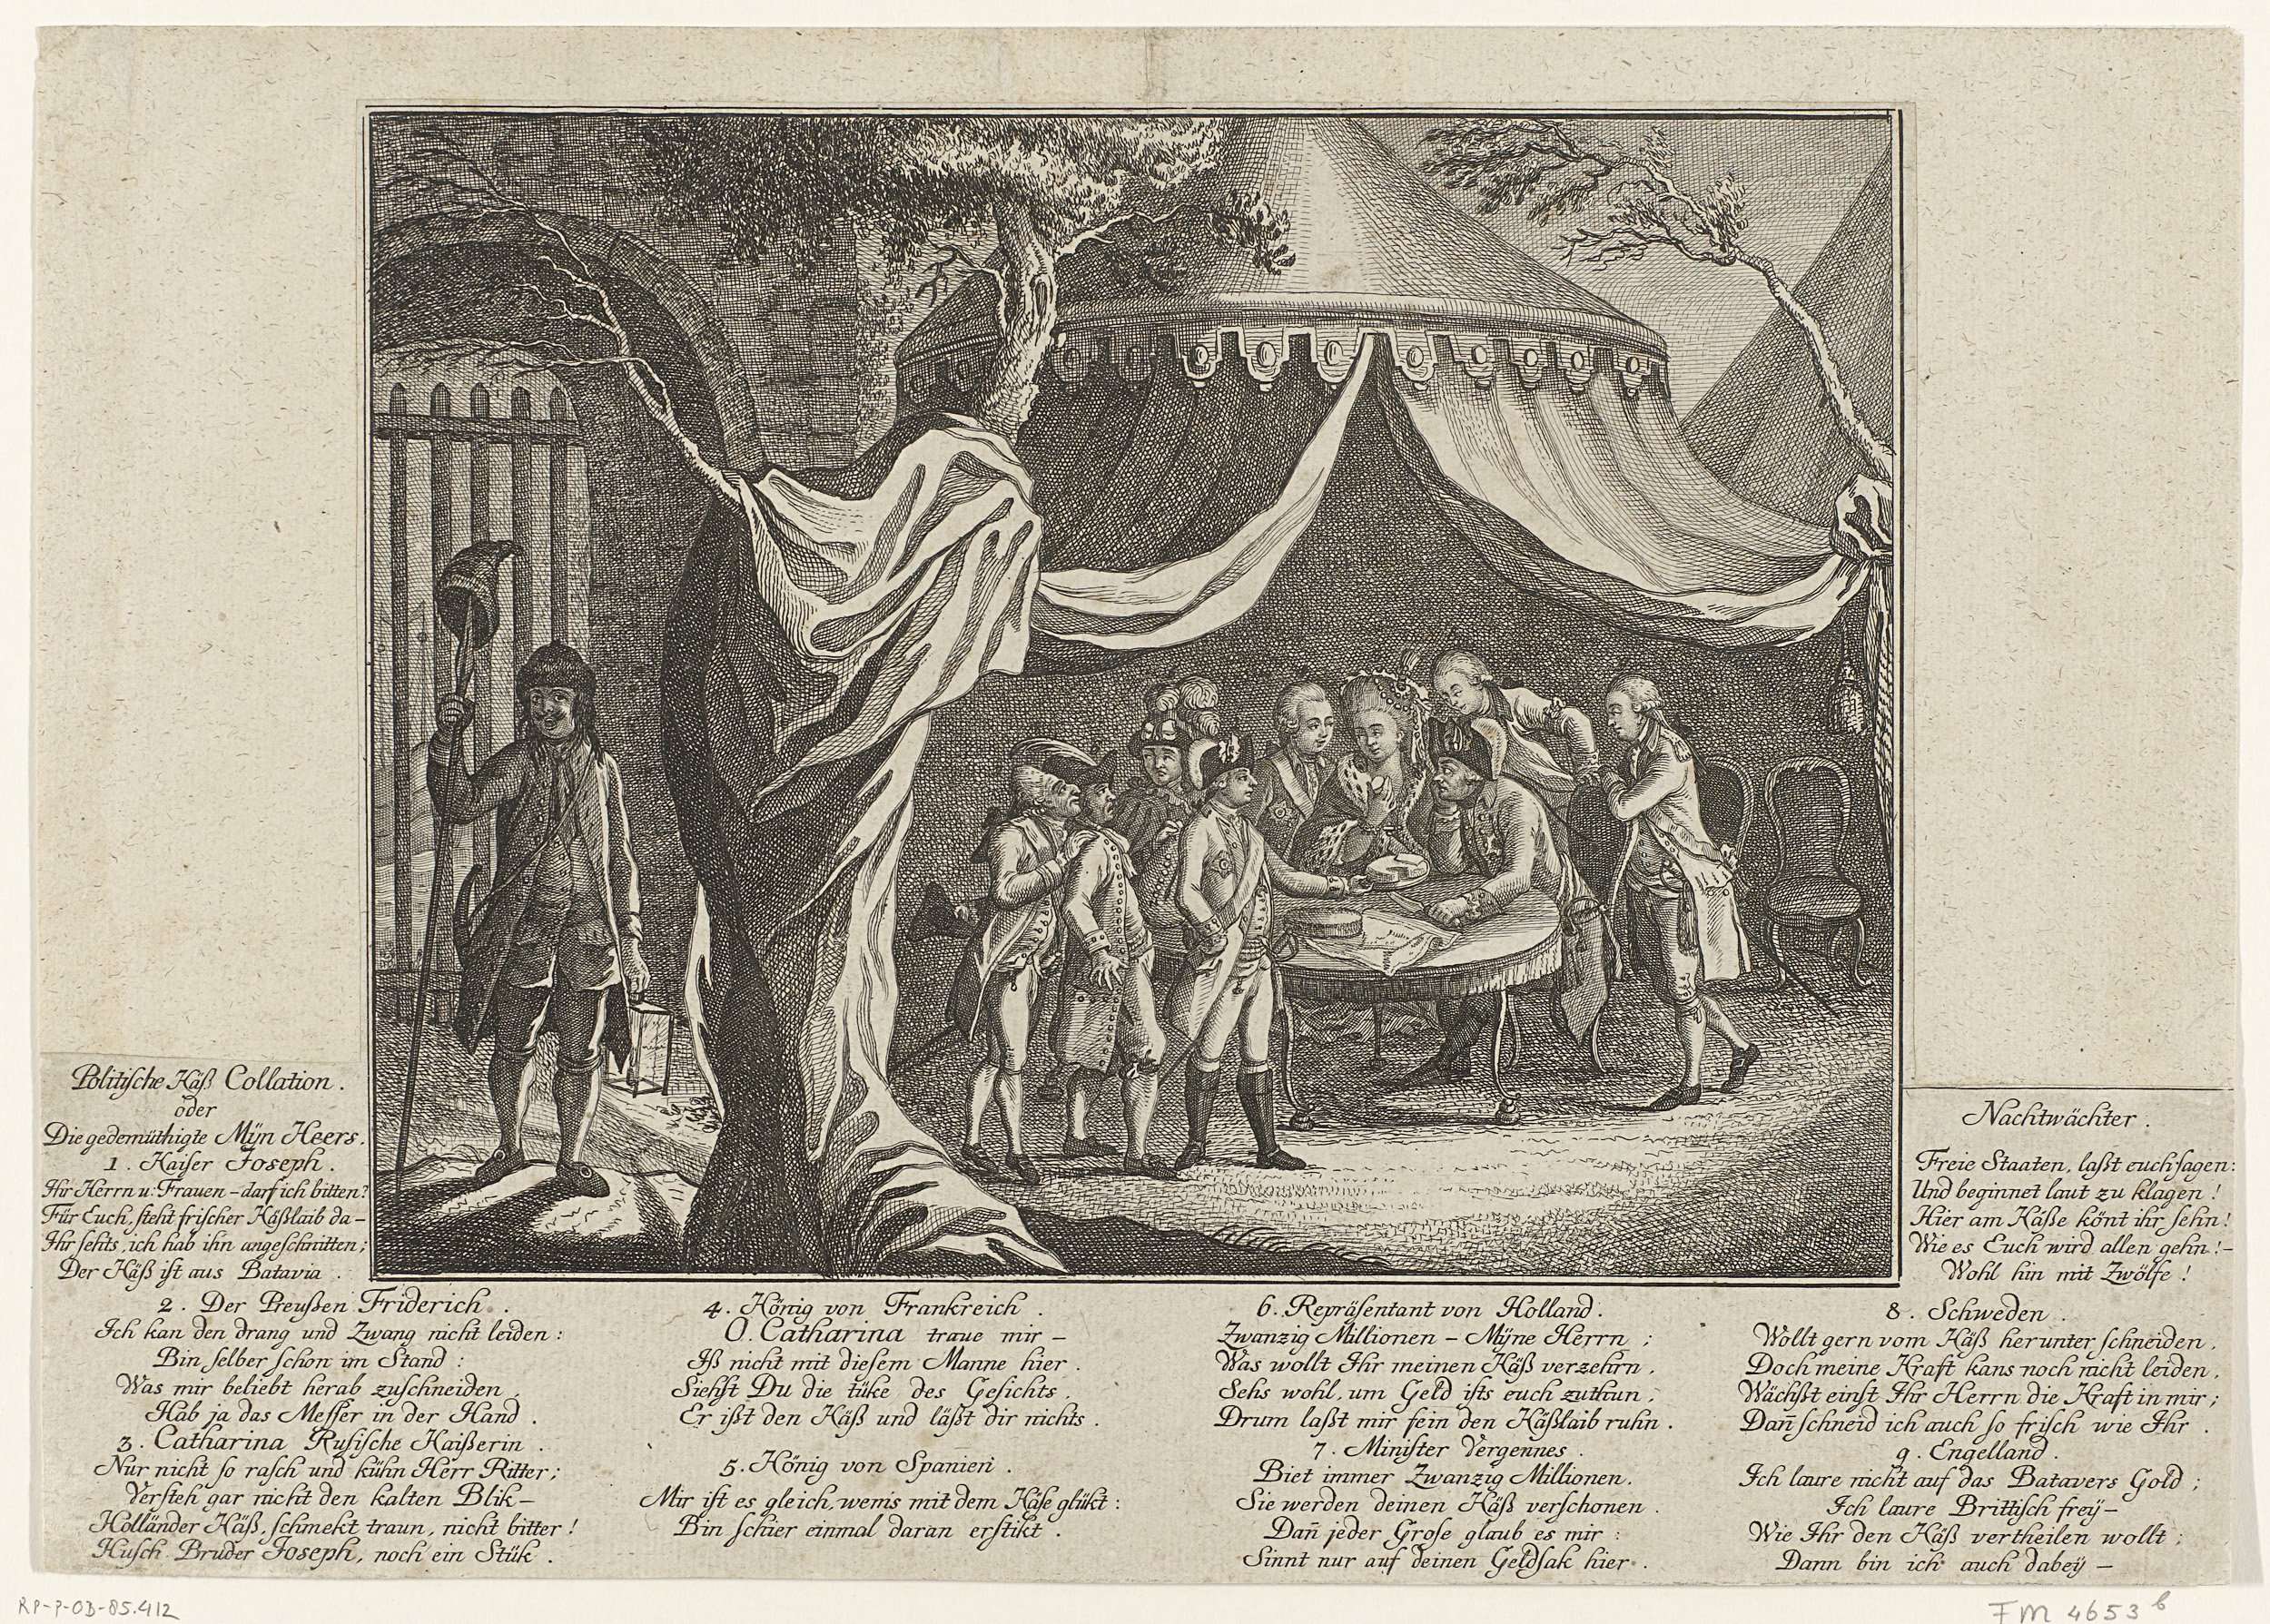 Politische Käß Collation.
oder
Die gedemüthigte Mÿn Heers.
1. Kaiser Joseph.
Ihr Herrn u: Frauen – darf ich bitten?
Für Euch, steht frischer Käßlaib da –
Ihr sehts, ich hab ihn angeschnitten;
Der Käß ist aus Batavia.
2. Der Preußen Friderich.
Ich kan den drang und Zwang nicht leiden:
Bin selber schon im Stand:
Was mir beliebt herab zuschneiden,
Hab ja das Messer in der Hand.
3. Catharina Rusische Kaißerin.
Nur nicht so rasch und kühn Herr Ritter;
Versteh gar nicht den kalten Blik –
Holländer Käß, schmekt traun, nicht bitter!
Husch Bruder Joseph, noch ein Stük.
4. König von Frankreich.
O. Catharina traue mir –
Iß nicht mit diesem Manne hier.
Siehst Du die tüke des Gesichts,
Er ißt den Käß und läßt dir nichts.
5. König von Spanien.
Mir ist es gleich, wenns mit dem Käse glükt:
Bin schier einmal daran erstikt.
6. Repräsentant von Holland.
Zwanzig Millionen – Mÿne Herrn;
Was wollt Ihr meinen Käß verzehrn,
Sehs wohl, um Geld ists euch zuthun,
Drum laßt mir fein den Käßlaib ruhn.
7. Minister Vergennes.
Biet immer Zwanzig Millionen.
Sie werden deinen Käß verschonen.
Dañ jeder Grose glaub es mir:
Sinnt nur auf deinen Geldsak hier.
Nachtwächter.
Freie Staaten, laßt euch sagen:
Und beginnet laut zu klagen!
Hier am Käße könt ihr sehn!
Wie es Euch wird allen gehn! –
Wohl hin mit Zwölfe!
8. Schweden.
Wollt gern vom Käß herunter schneiden,
Doch meine Kraft kans noch nicht leiden,
Wächßt einst Ihr Herrn die Kraft in mir;
Dañ schneid ich auch so frisch wie Ihr.
9. Engelland.
Ich laure nicht auf das Batavers Gold;
Ich laure Brittisch frey –
Wie Ihr den Käß vertheilen wollt;
Dann bin ich auch dabeÿ –
RP-P-OB-85.412
FM 4653 b